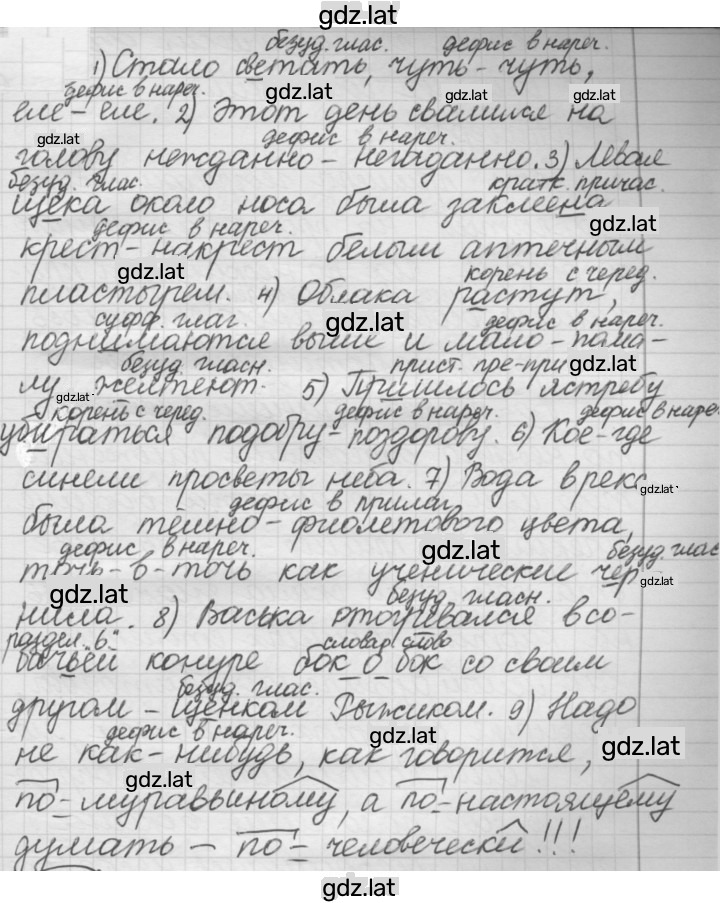 gdz.lat
безуд. глас. дефис в нареч.
1) Стало светать, чуть-чуть,
gdz.lat
дефис в нареч.
gdz.lat gdz.lat
еле-еле. 2) Этот день свалился на
gdz.lat дефис в нареч. gdz.lat
голову нежданно-негаданно. 3) Левая
безуд. глас. кратк. причас.
щека около носа была заклеена
дефис в нареч. gdz.lat
крест-накрест белым аптечным
gdz.lat корень с черед.
пластырем. 4) Облака растут,
суфф. глаг. gdz.lat дефис в нареч.
поднимаются выше и мало-пома-
безуд. гласн. прист. пре-при gdz.lat
лу желтеют. 5) Пришлось ястребу
gdz.lat
корень с черед. дефис в нареч. дефис в нареч
убираться подобру-поздорову. 6) Кое-где
синели просветы неба. 7) Вода в реке
gdz.lat
дефис в прилаг.
была тёмно-фиолетового цвета,
дефис в нареч. gdz.lat безуд. глас
точь-в-точь как ученические чер
gdz.lat gdz.lat
безуд. гласн.
нила. 8) Васька отогревался в со-
раздел. "ь" словар. слово
бачьей конуре бок о бок со своим
безуд. глас.
другом - щенком Рыжиком. 9) Надо
дефис в нареч. gdz.lat gdz.lat
не как-нибудь, как говорится,
gdz.lat
по-муравьиному, а по-настоящему
думать - по-человечески!!!
gdz.lat